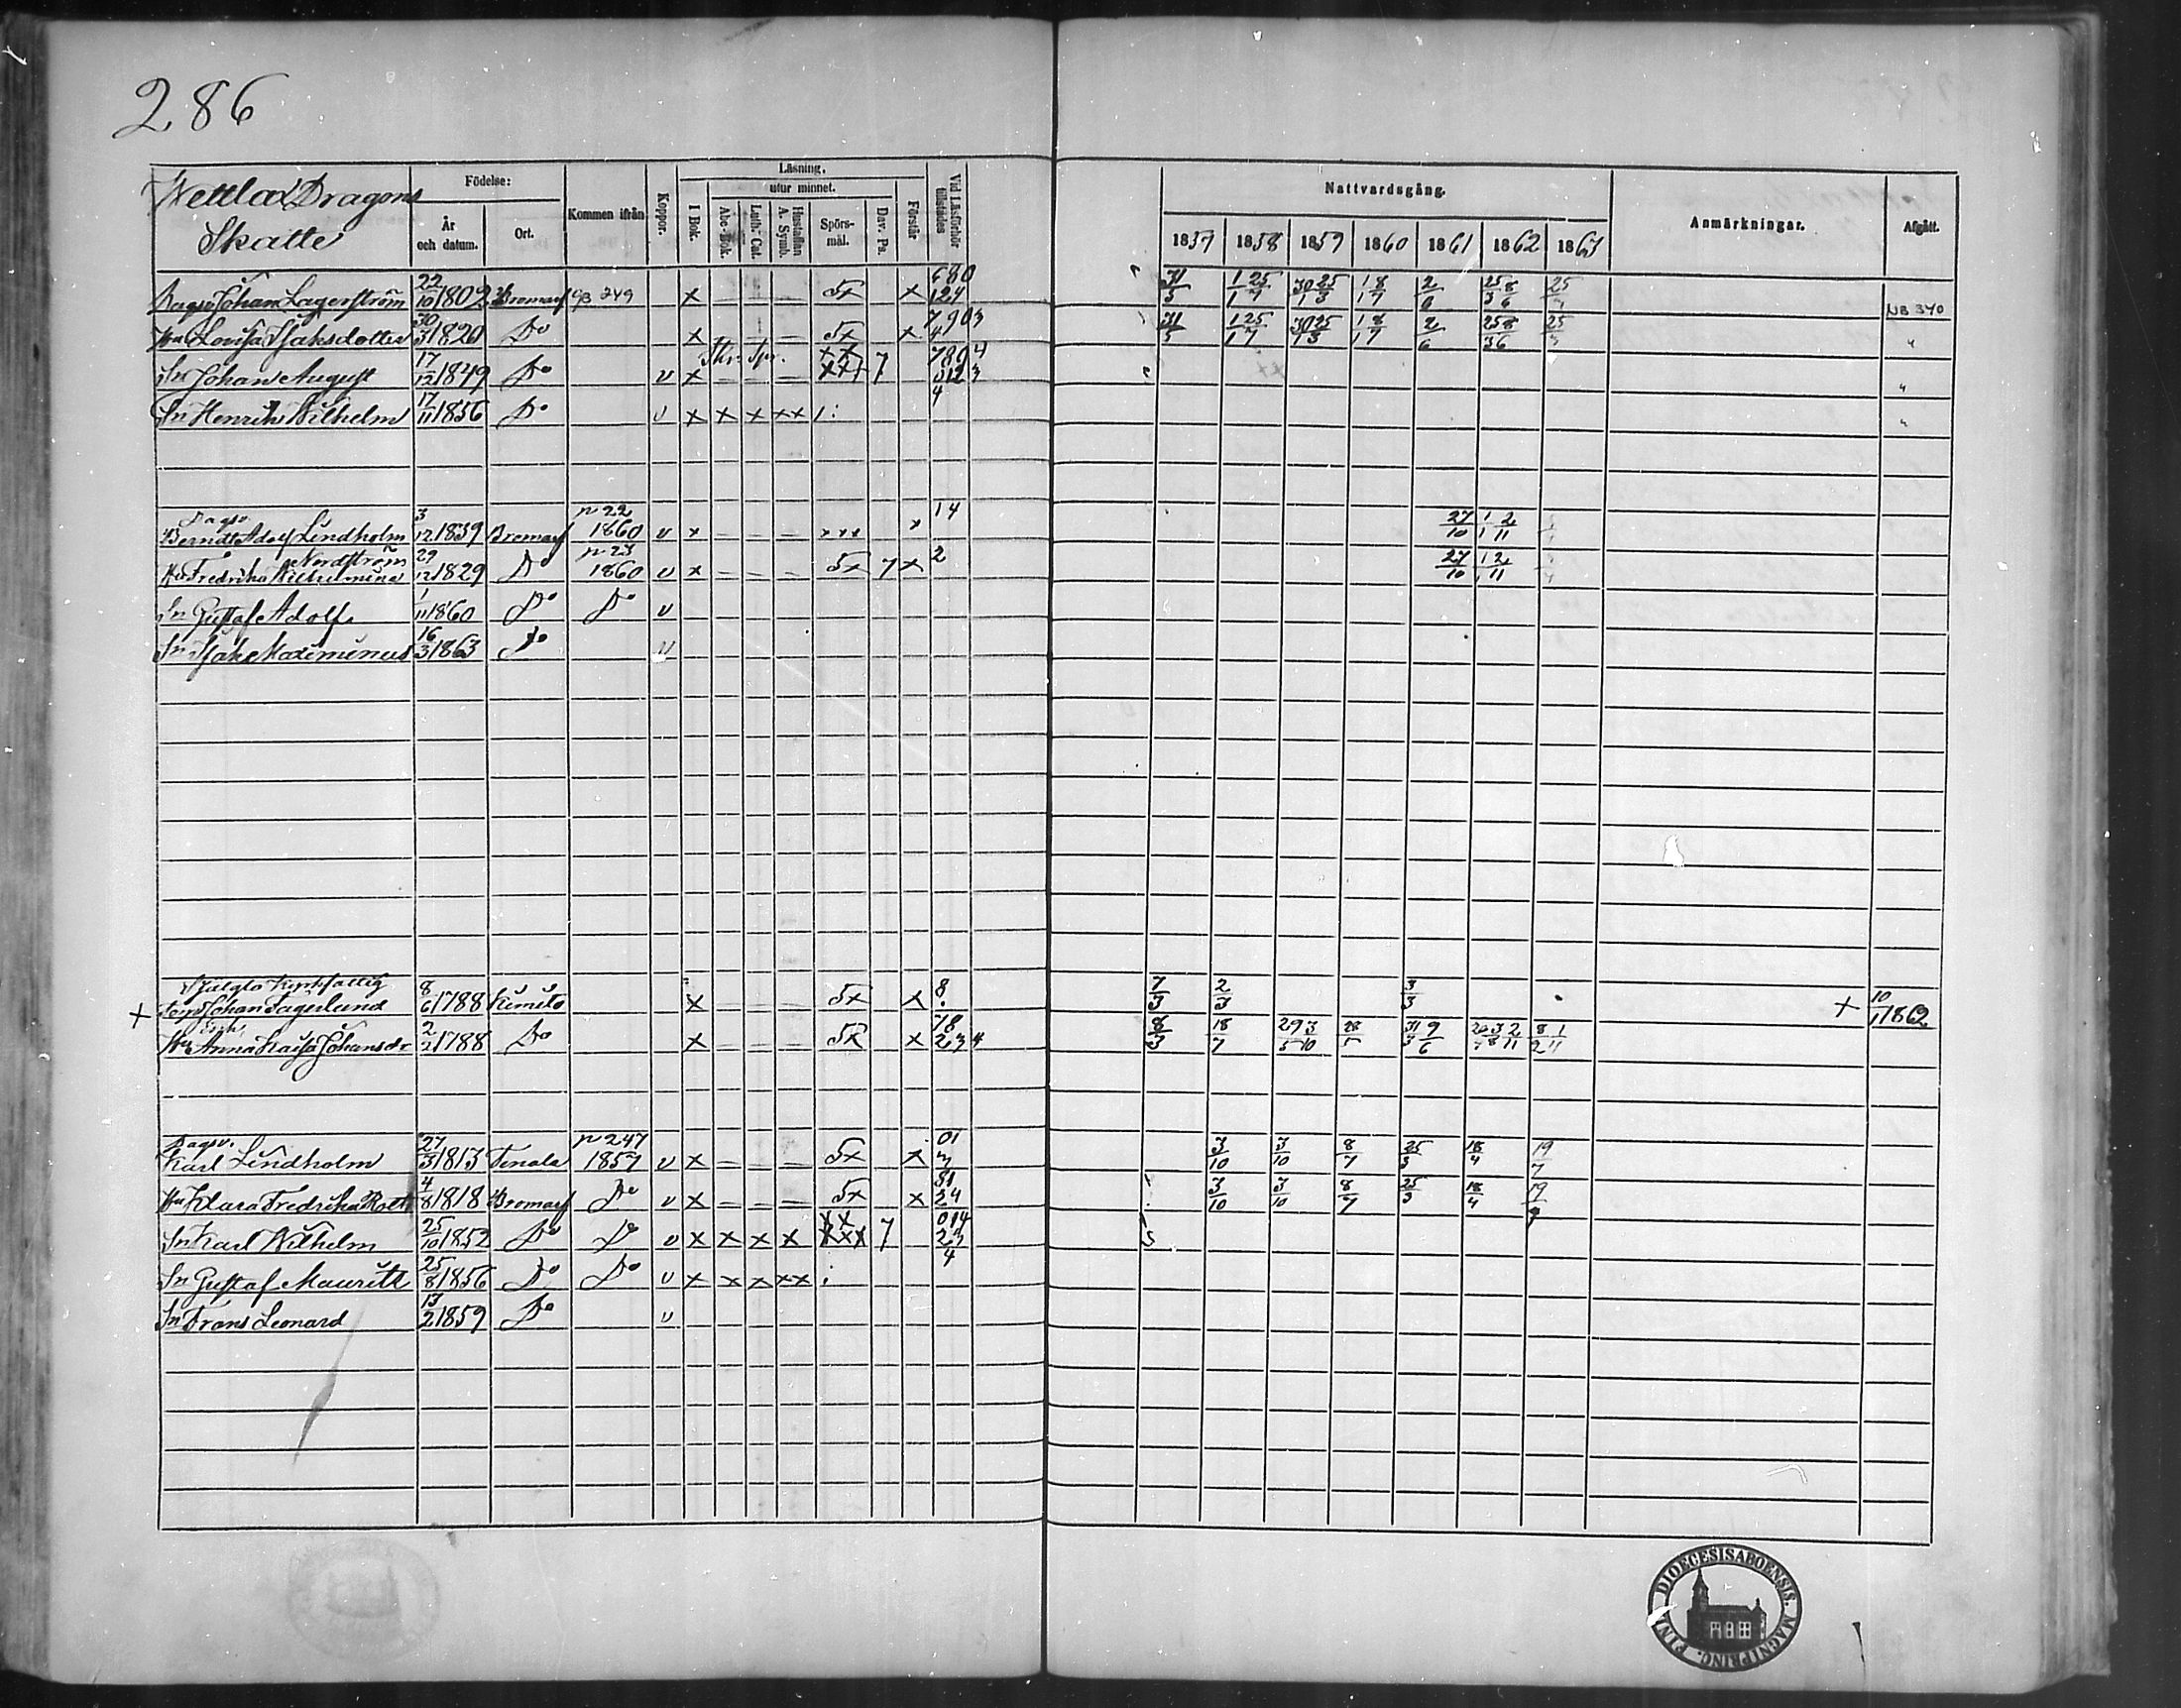 286
Wettlax Dragons
Skatte
Födelse: År och datum. Ort. Kommen ifrån Koppor. Läsning. I Bok. utur minnet. Abc-Bok. Luth. Cat. Hustaflan A. Symb. Spörs-mål. Dav. Ps. Förstår Vid Läsförhör tillstädes
Nattvardsgång. 1857 1858 1859 1860 1861 1862 1863 Anmärkningar. Afgått.
Dagsv Johan Lagerström 22/10 1802 Bromarf GB 249 x – – – 5x x 680 124 31/5 1/1 25/7 30/1 25/3 1/1 8/7 2/6 25/3 8/6 25 NB 340
Hu Lovisa Isaksdotter 30/3 1820 Do x – – – 5x x 7903 4 31/5 1/1 25/7 30/1 25/3 1/1 8/7 2/6 25/3 8/6 25 "
Sn Johan August 17/12 1849 Do v x – – – 7 7894 "
Sn Henrik Wilhelm 17/11 1856 Do v x x x xx 4 "
Dagsv.
Berndt Adolf Lindholm 3/12 1839 Bromarf p 22 1860 v x – – – xxx x 14 27/10 1/1 2/11
Nordström
Hu Fredrika Wilhelmina 29/12 1829 Do p 23 1860 v x – – – 5x 7 x 2 27/10 1/1 2/11
Sn Gustaf Adolf 1/11 1860 Do Do v
Sn Isak Maximinus 16/3 1863 Do v
Kyrkfattig
+ Johan Fagerlund 8/6 1788 Kimito x – – – 5x x 8 7/3 2/3 3/3 + 10/1 1862
Enk.
Anna Kaisa Johansdr 2/2 1788 Do x – – – 5x x 78 234 8/3 18/7 29/5 3/10 28/5 31/3 9/6 8/2 1/11
Dagsv.
Karl Lindholm 27/3 1813 Tenala p 247 1857 v x – – – 5x x 01 3/10 3/10 8/7 25/3 18/4 19/7
Hu Klara Fredrika Roth 4/8 1818 Bromarf Do v x – – – 5x x 81 24 3/10 3/10 8/7 25/3 18/4 19/7
Sn Karl Wilhelm 25/10 1852 Do Do v x x x x xx xxx 7 014 23
Sn Gustaf Mauritz 25/8 1856 Do Do v x x x xx 4
Sn Frans Leonard 13/2 1859 Do v
DIOECESIS ABOENSIS. MAGNI PRINC. FINL.